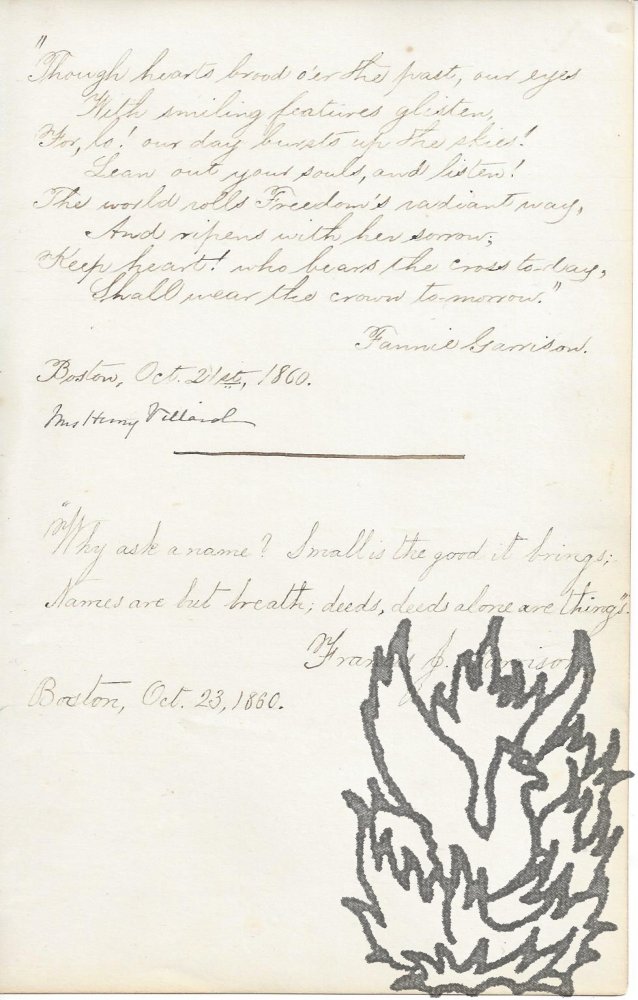 "Though hearts brood o'er the past, our eyes
With smiling features glisten,
For, lo! our day bursts up the skies!
Lean out your souls, and listen!
The world rolls Freedom's radiant way,
And ripens with her sorrow;
Keep heart! who bears the cross to-day,
Shall wear the crown to-morrow."
Fannie Garrison.
Boston, Oct. 21st, 1860.
Mrs Henry Villard
"Why ask a name? Small is the good it brings;
Names are but breath; deeds, deeds alone are things".
Francis J. Garrison
Boston, Oct. 23, 1860.